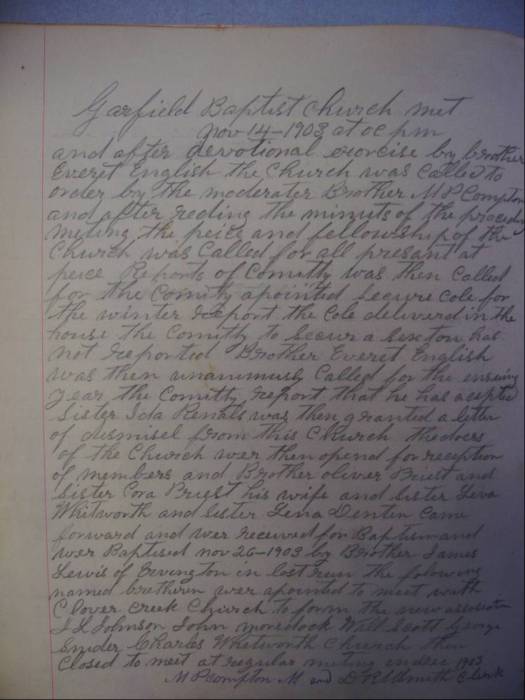 Garfield Baptist Church met
Nov 14-1903 at oc pm
and after devotional exorcise by brother
Everet English the Church was Called to
order by the moderater Brother M P Compton
and after reading the minuts of the
meting the peice and fellowship of the
Church was Called for all presant at
peice Reports of Comitty was then Called
for the Comity apointed Secure Cole for
the winter Report the Cole deliverd in the
house the Comitty to Secure a Sexton has
not reported Brother Everet English
was then unanimusly Called for the ensuing
year the Comitty report that he has
Sister Ida was then granted a letter
of dismisel from this Church thedoers
of the Church wer then opend for reception
of members and Brother oliver Priest and
Sister Cora Priest his wife and Sister Leva
Whitworth and Sister Lena Denten Came
forward and wer received for Baptism and
wer Baptised nov 26-1903 by Brother James
Lewis of Irvington in lost run the folowing
named brethern wer apointed to meet with
Clover Creek Church to form the new
Johnson John Will Scott George
Charles Whitworth Church then
Closed to meet at regular meeting in dec 1903
M P Compton M and D Clerk